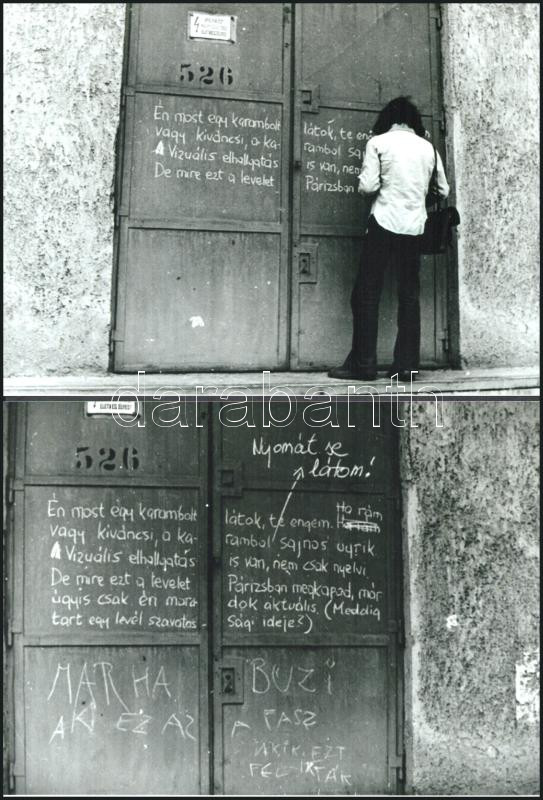 4
526
Én most egy karambolt
vagy kiváncsi, a ka-
A Vizuális elhallgatás
De mire ezt a levelet
látok, te
rambol
is van, nem
Párizsban
darabanth
526
Nyomát se
látom!
Én most egy karambolt
vagy kiváncsi, a ka-
A Vizuális elhallgatás
De mire ezt a levelet
úgyis csak én mara-
tart egy levél szavatos-
látok, te engem. Ha rám
rambol sajnos
is van, nem csak nyelvi.
Párizsban megkapod, már
dok aktuális. (Meddig
sági ideje?)
MARHA
AKI EZ AZ
BUZI
A FASZ
AKIK EZT
FELIRTÁK